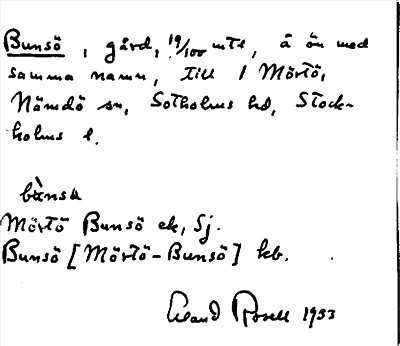 Bunsö, gård, 19/100 mtl, å ön med
samma namn, till 1 Mörtö,
Nämdö sn, Sotholms hd, Stock-
holms l.
bùnsa
Mörtö Bunsö ek, Sj.
Bunsö [Mörtö-Bunsö] kb.
Erland Rosell 1933